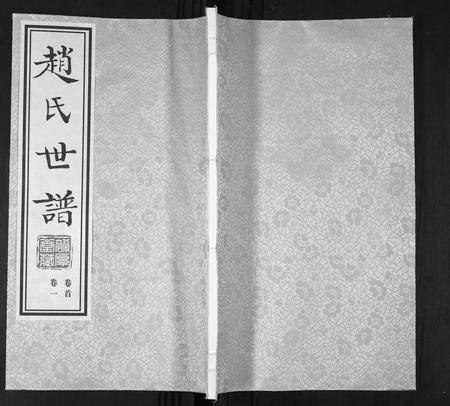 趙氏世譜
卷首
卷一